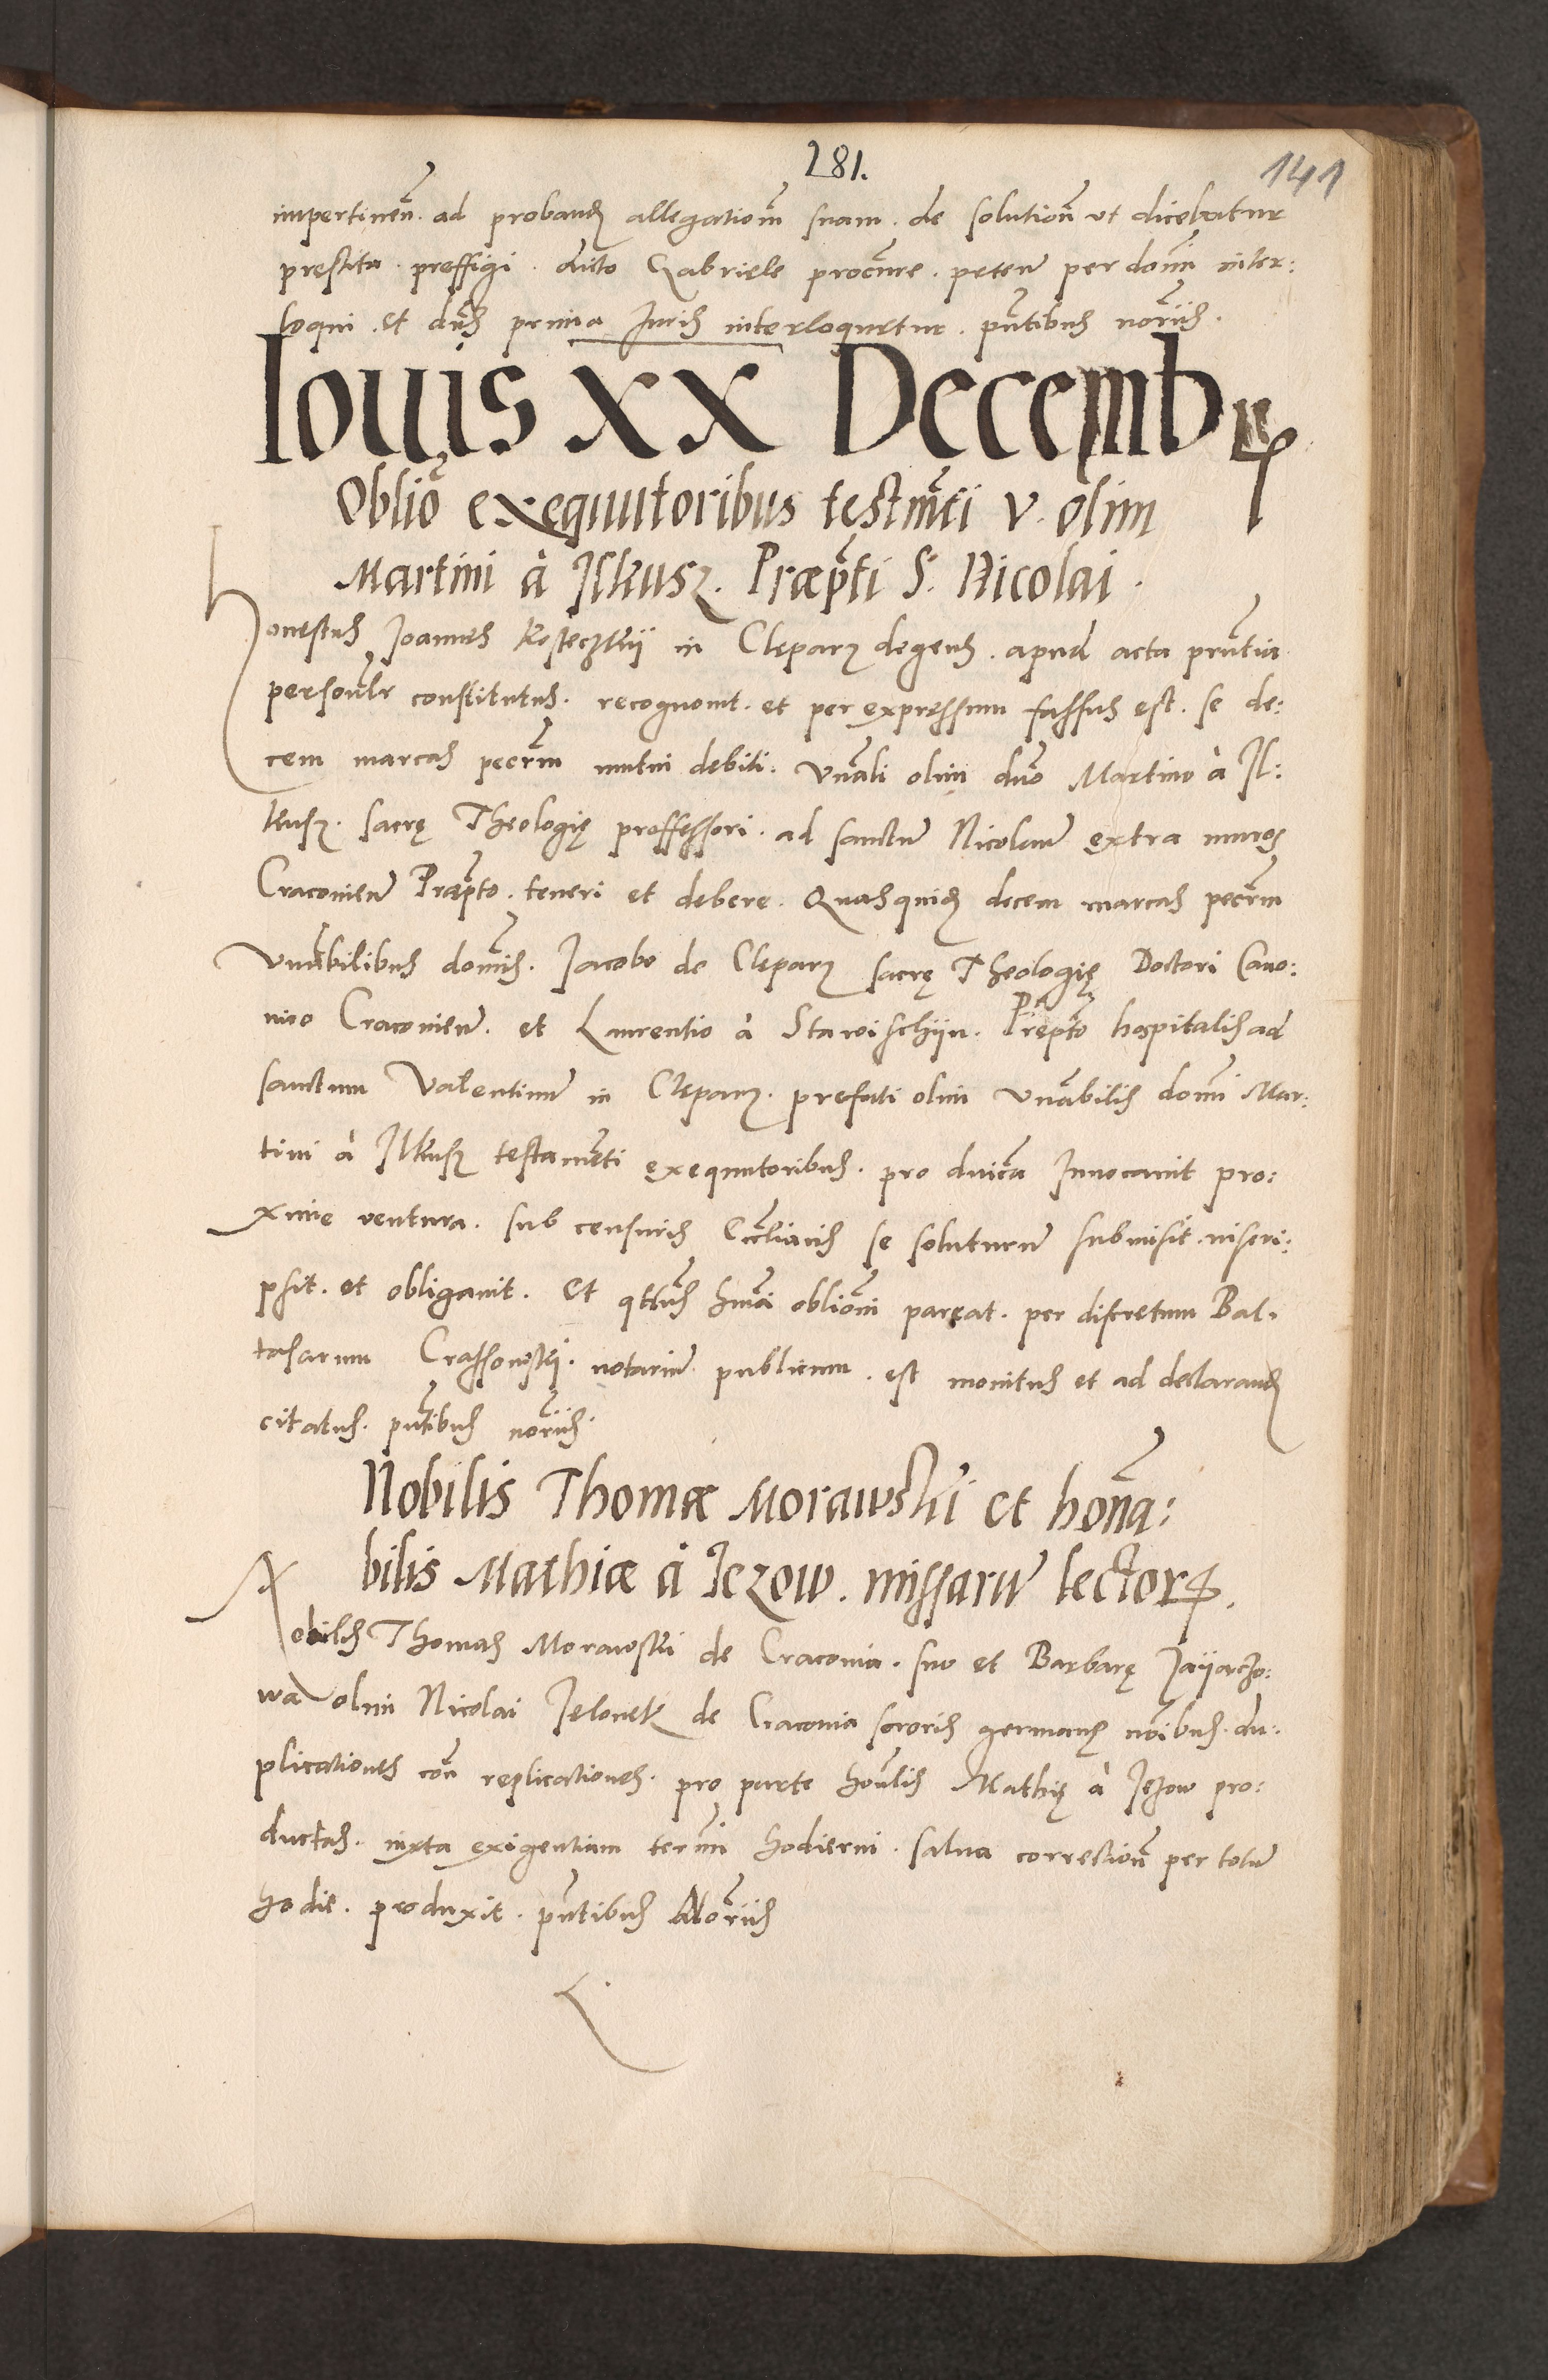 281.
141
impertinen̄. ad proband̨ allegationē suam. de solutionē ut dicebatur
prestita. preffigi. dicto Gabriele procūre. peteñ per domī inter:
loqui. et dn̄s prima Juris interloquetur. pn̄tibus nor̄iis.
Iouis XX Decembr̨
Oblio̅ exequutoribus testm̄ti V. olim
Martini à Ilkusz. Præp̄ti S. Nicolai.
Honestus Joannes Kosteczkij in Clepar̨ degens. apud acta pn̄tia
personlr̄ constitutus. recognouit. et per expressum fassus est. se de:
cem marcas pecr̄m mutui debiti. Vn̄ali olim dn̄o Martino à Il:
kusz. sacrę Theologię proffessori. ad sanctū Nicolaū extra muros
Cracovieñ Præp̄to. teneri et debere. Quasquid̨ decem marcas pecr̄m
Vnābilibus domīs. Jacobo de Clepar̨ sacrę Theologię Doctori Cano:
nico Cracovieñ. et Laurentio à Stawischijn. Prep̄to hospitalis ad
sanctum Valentinū in Clepar̨. prefati olim vnābilis domī Mar:
tini à Ilkusz testamēti exequutoribus. pro dnica̅ Inuocauit pro:
xime ventura. sub censuris Eccl̄iacis se soluturū submisit. inscri:
psit. et obligauit. Et qtn̄s hmo̅i oblionī pareat. per discretum Bal:
tasarum Crassowski. notariū publicum. est monitus et ad declarand̨
citatus. pn̄tibus nor̄iis.
Nobilis Thomæ Morawski et honā:
bilis Mathiæ à Jezow. missarū lectoris.
Nobilis Thomas Morawski de Cracovia. suo et Barbarę Jayarczo:
wa olim Nicolai Jelonek de Cracovia sororis germanę noībus. du:
plicationes con̄ replicationes. pro parte honl̄is Mathię à Jeżow pro:
ductas. iuxta exigentiam termī hodierni. salua correctionē per totū
hodie. produxit. pn̄tibus Nor̄iis